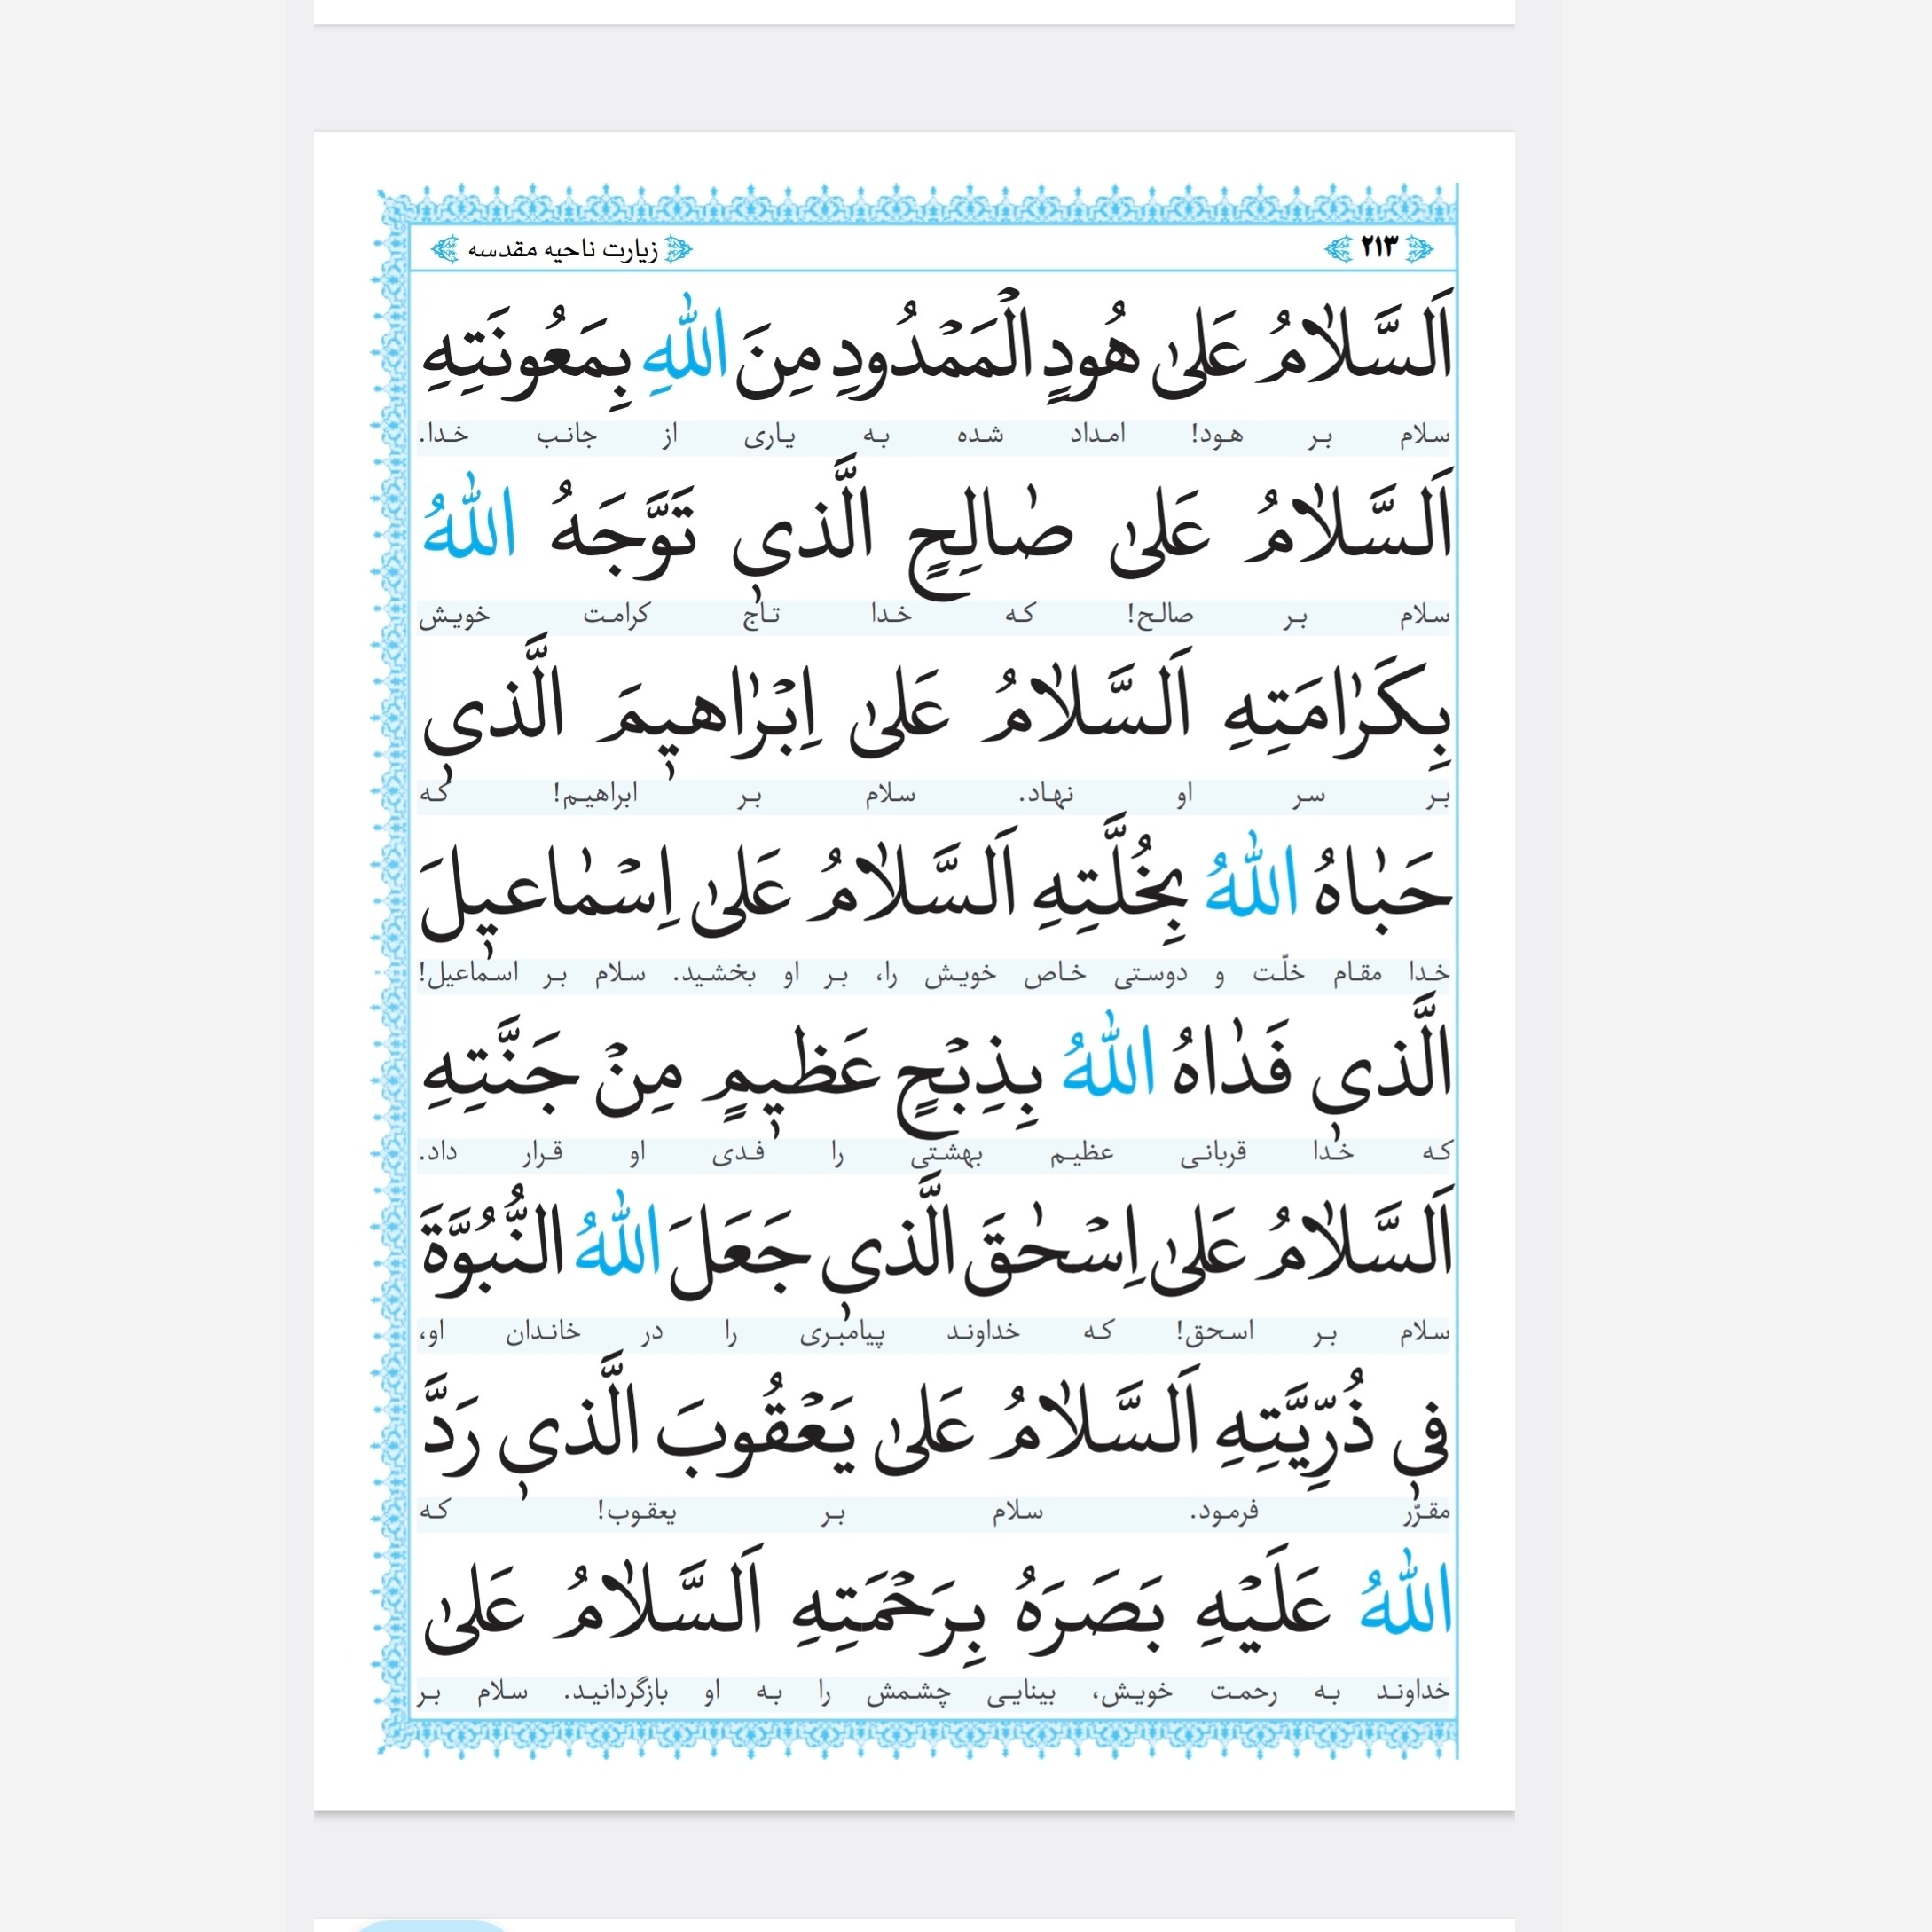 ۲۱۳ زیارت ناحیه مقدسه
اَلسَّلٰامُ عَلىٰ هُودٍ الْمَمْدُودِ مِنَ اللّٰهِ بِمَعُونَتِهِ
سلام بر هود! امداد شده به یاری از جانب خدا.
اَلسَّلٰامُ عَلىٰ صٰالِحٍ الَّذي تَوَّجَهُ اللّٰهُ
سلام بر صالح! که خدا تاج کرامت خویش
بِكَرٰامَتِهِ اَلسَّلٰامُ عَلىٰ اِبْرٰاهيمَ الَّذي
بر سر او نهاد. سلام بر ابراهیم! که
حَبٰاهُ اللّٰهُ بِخُلَّتِهِ اَلسَّلٰامُ عَلىٰ اِسْمٰاعيلَ
خدا مقام خلّت و دوستی خاص خویش را، بر او بخشید. سلام بر اسماعیل!
الَّذي فَدٰاهُ اللّٰهُ بِذِبْحٍ عَظيمٍ مِنْ جَنَّتِهِ
که خدا قربانی عظیم بهشتی را فدی او قرار داد.
اَلسَّلٰامُ عَلىٰ اِسْحٰقَ الَّذي جَعَلَ اللّٰهُ النُّبُوَّةَ
سلام بر اسحق! که خداوند پیامبری را در خاندان او،
في ذُرِّيَّتِهِ اَلسَّلٰامُ عَلىٰ يَعْقُوبَ الَّذي رَدَّ
مقرّر فرمود. سلام بر یعقوب! که
اللّٰهُ عَلَيْهِ بَصَرَهُ بِرَحْمَتِهِ اَلسَّلٰامُ عَلىٰ
خداوند به رحمت خویش، بینایی چشمش را به او بازگردانید. سلام بر